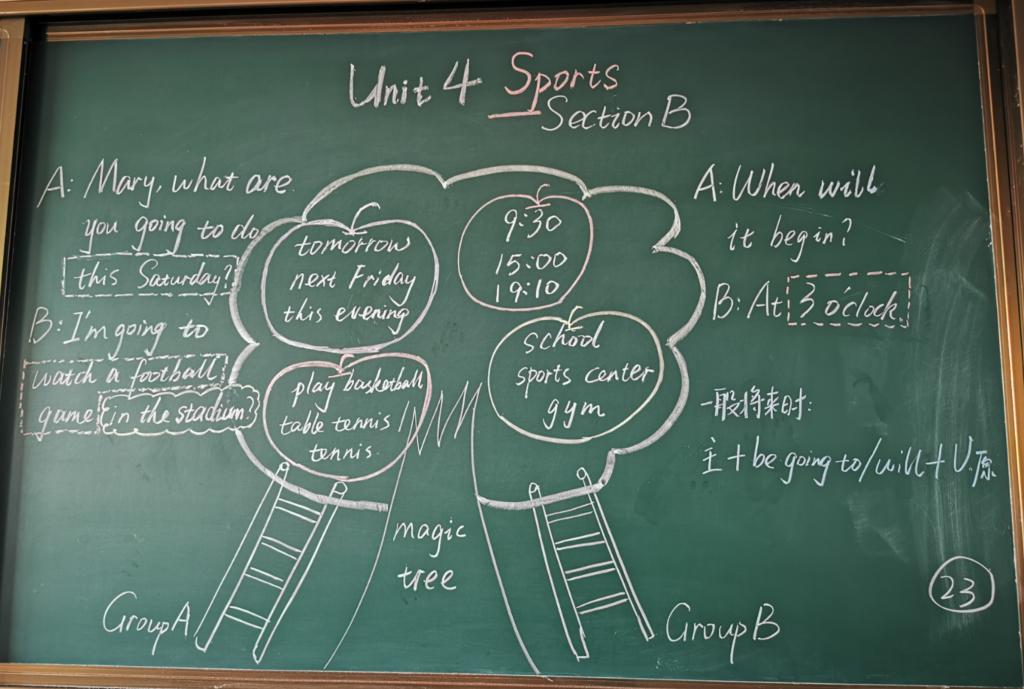 Unit 4 Sports
Section B
A: Mary, what are
you going to do
this Saturday?
B: I'm going to
watch a football
game in the stadium?
tomorrow
next Friday
this evening
9:30
15:00
19:10
play basketball
table tennis
tennis
school
sports center
gym
magic
tree
Group A
Group B
A: When will
it begin?
B: At 3 o'clock.
一般将来时:
主+be going to/will+V原
23